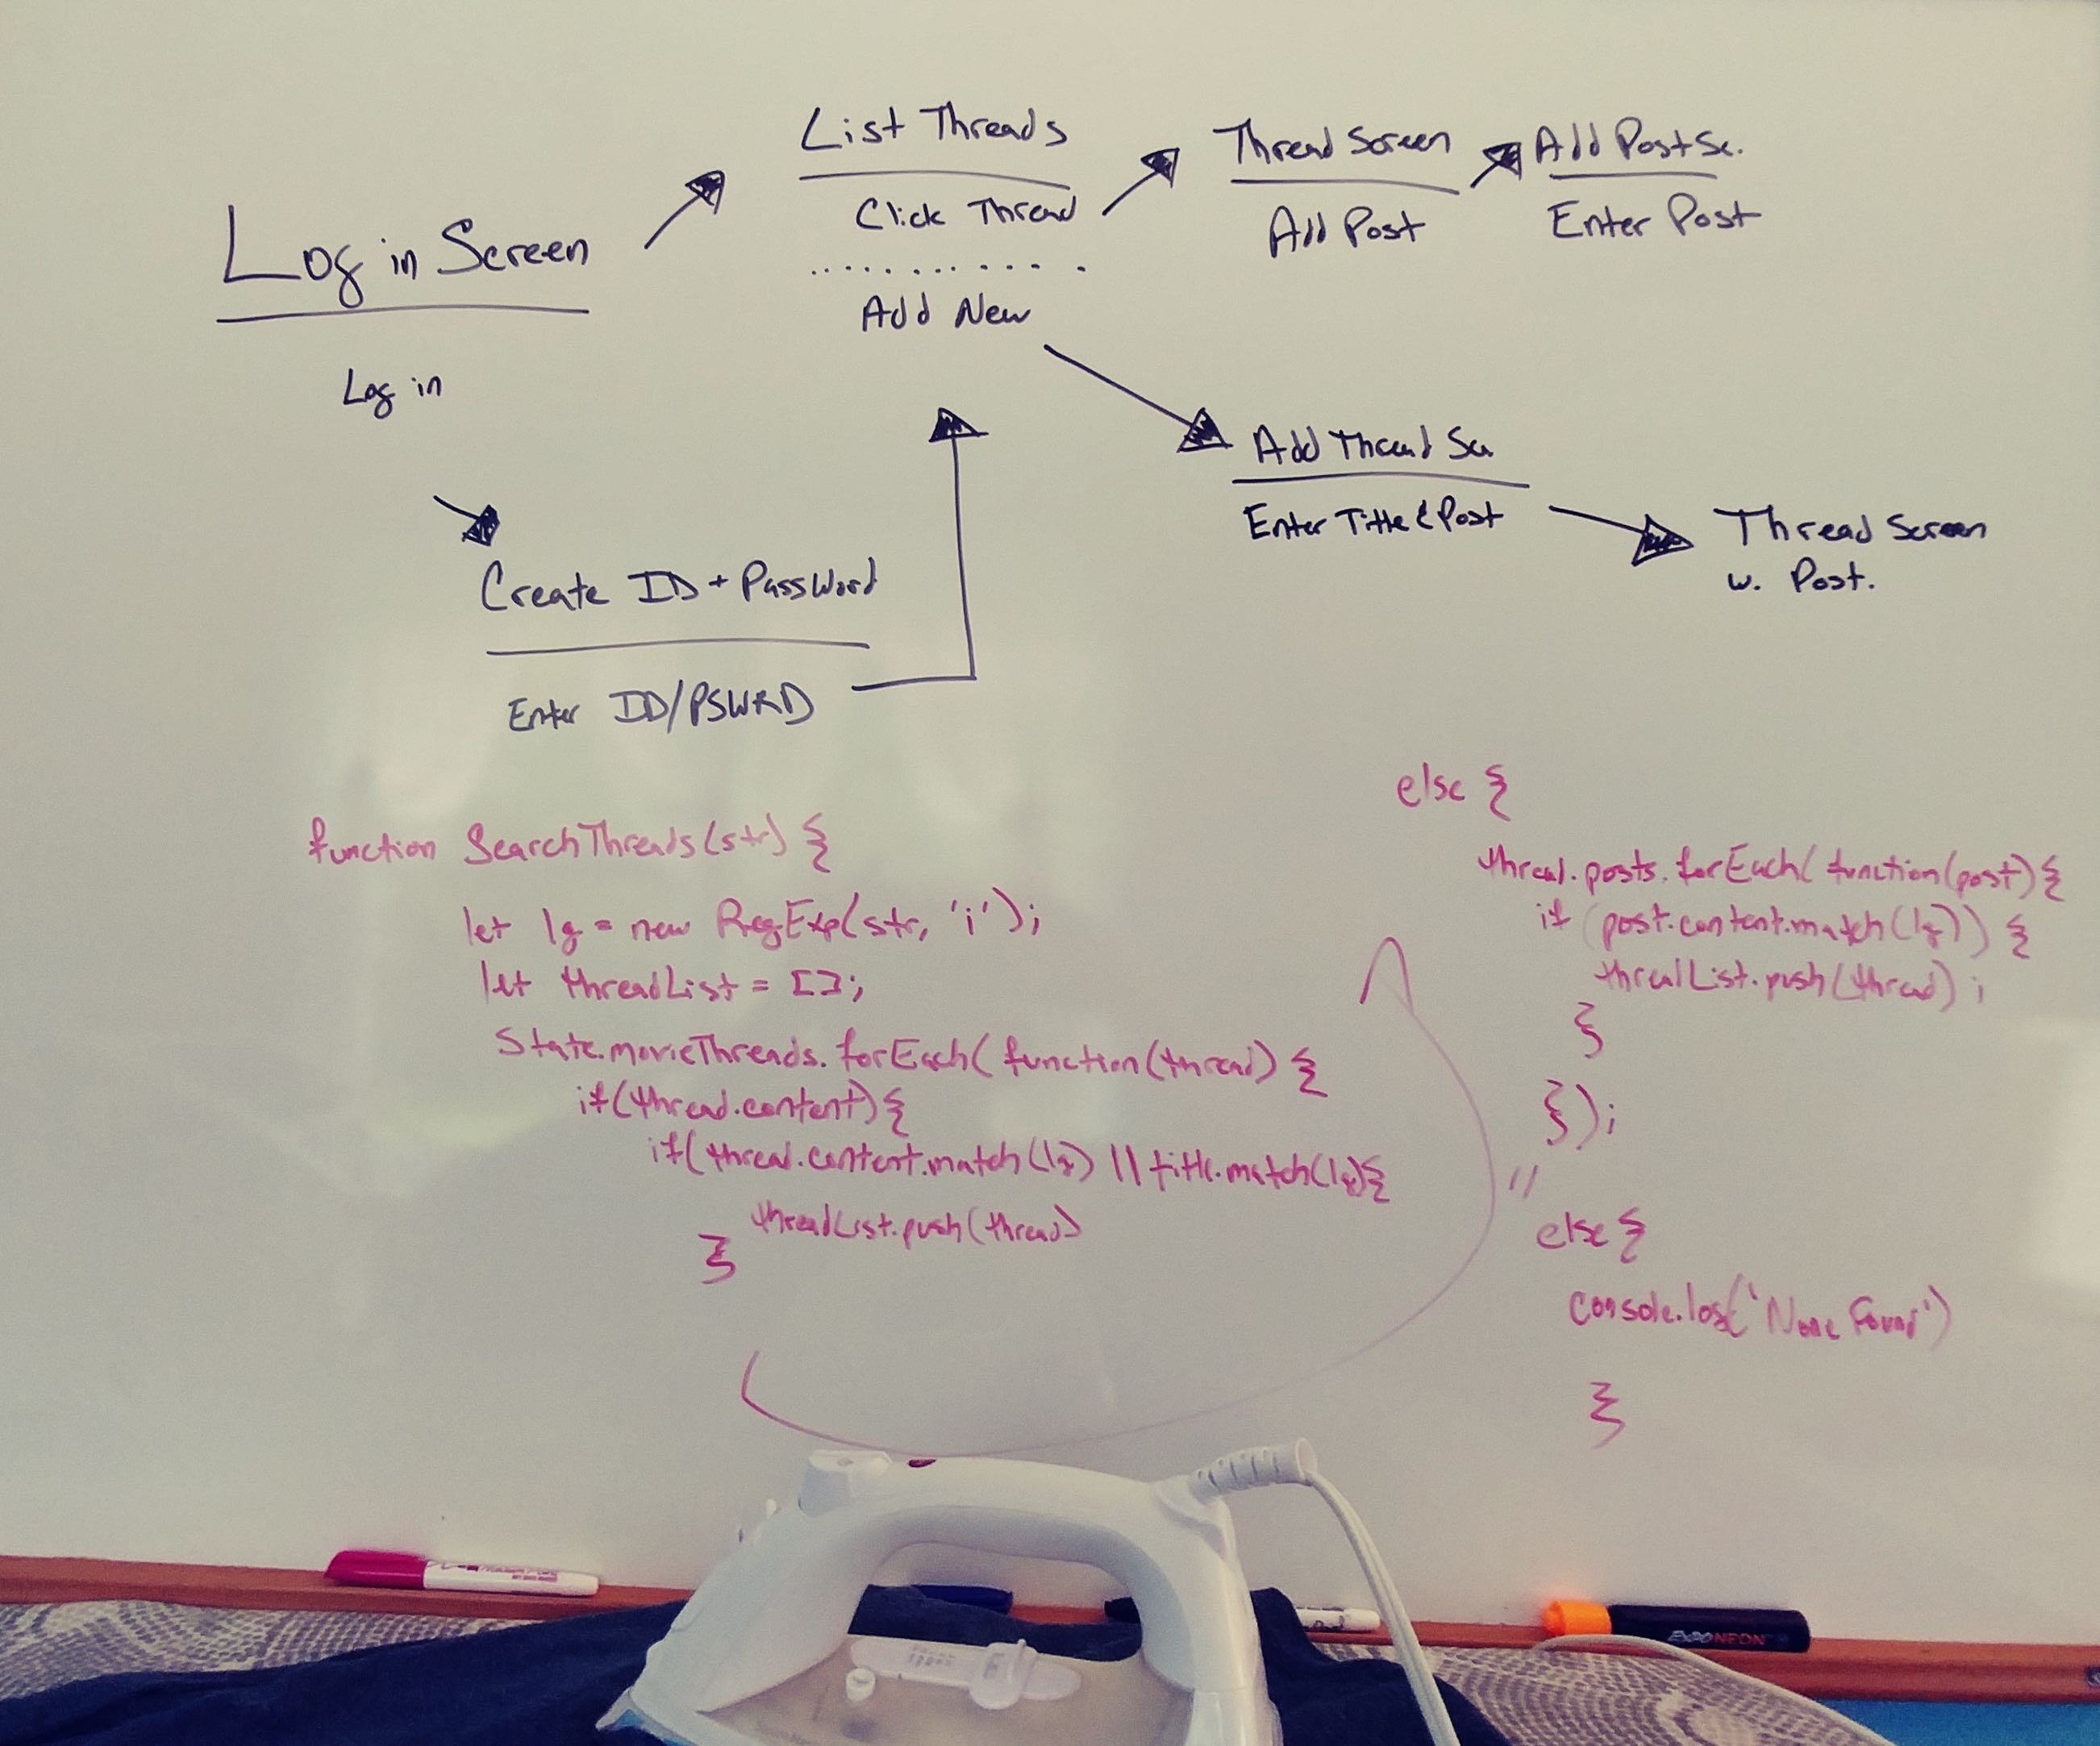 Log in Screen
Log in
Create ID + PassWord
Enter ID/PSWRD
List Threads
Click Thread
Add New
Thread Screen
Add Post
Add Post Sc.
Enter Post
Add Thread Sc.
Enter Title & Post
Thread Screen
w. Post.
function SearchThreads(str) {
let lg = new RegExp(str, 'i');
let threadList = [];
State.movieThreads.forEach( function(thread) {
if(thread.content){
if(thread.content.match(lg) || title.match(lg){
threadList.push(thread)
}
else {
thread.posts.forEach( function(post) {
if (post.content.match(lg)) {
threadList.push(thread);
}
});
//
else {
console.log('None Found')
}
EXPO NEON